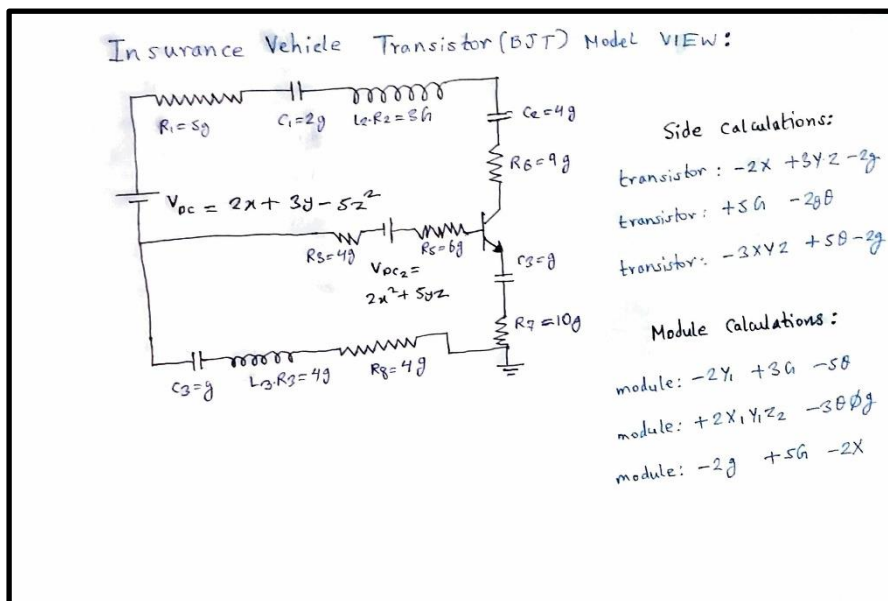 Insurance Vehicle Transistor (BJT) Model VIEW:
R1 = 5g
C1 = 2g
L2·R2 = 3G
C2 = 4g
R6 = 9g
VDC = 2x + 3y - 5z²
R3 = 4g
R5 = 6g
VDC2 =
2x² + 5yz
C3 = g
R7 = 10g
C3 = g
L3·R3 = 4g
R8 = 4g
Side Calculations:
transistor: -2X +3Y·Z -2g
transistor: +5G -2gθ
transistor: -3XYZ +5θ -2g
Module Calculations:
module: -2Y1 +3G -5θ
module: +2X1Y1Z2 -3θØg
module: -2g +5G -2X